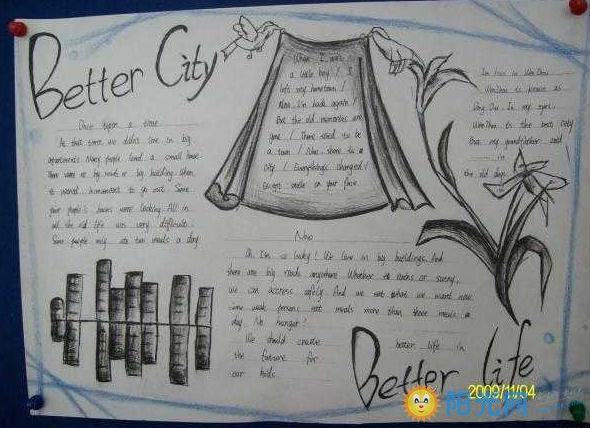 Better City
Once upon a time
At that time we didn't live in big
apartments. Many people lived a small house.
There were no big roads or big building. When
it rained, inconvenient to go out. Some
poor people's houses were leaking. All in
all the old life was very different.
Some people only ate two meals a day.
When I was
a little boy / I
left my hometown /
Now I'm back again /
But the old memories are
gone / There used to be
a town / Now there is a
city / Everythings changed /
smile on your face
I'm live in WenZhou
WenZhou is known as
In my eyes,
WenZhou is the best city
that my grandfather and
in
the old days
Now
Oh I'm so lucky! We live in big buildings. And
there are big roads anywhere. Whether it rains or sunny,
we can access safely. And we eat what we want now.
some people eat meals more than three meals a
day. No hunger!
We should create better life in
the future for
our kids.
Better life
2009/11/04
阳光网